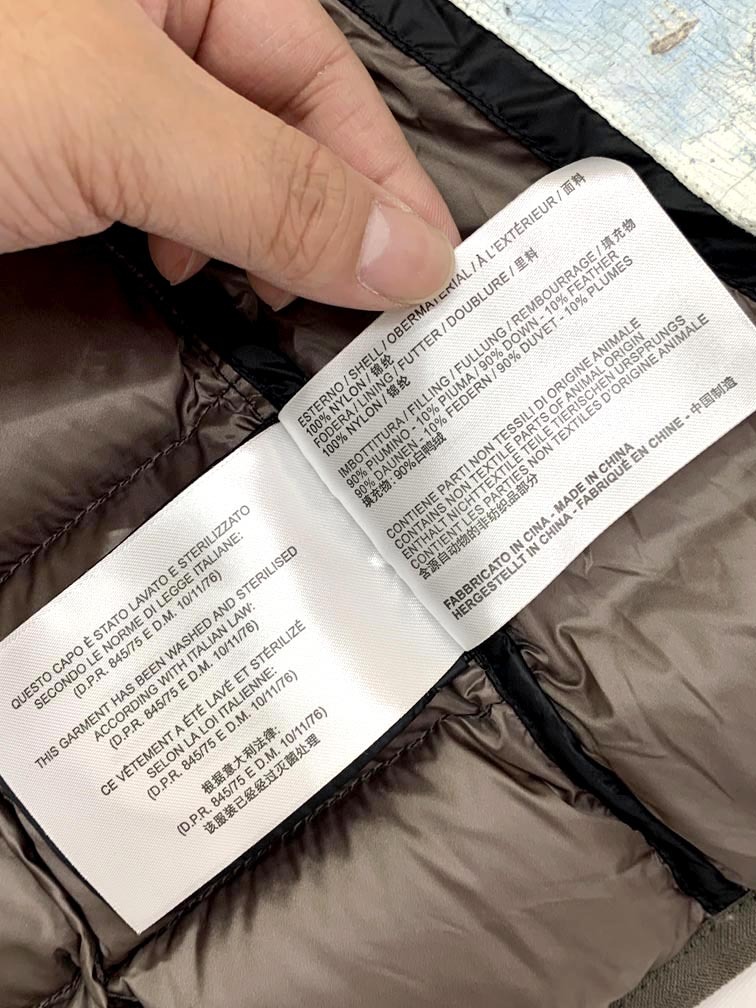 ESTERNO / SHELL / OBERMATERIAL / À L'EXTÉRIEUR / 面料
100% NYLON / 锦纶
FODERA / LINING / FUTTER / DOUBLURE / 里料
100% NYLON / 锦纶
IMBOTTITURA / FILLING / FULLUNG / REMBOURRAGE / 填充物
90% PIUMINO - 10% PIUMA / 90% DOWN - 10% FEATHER
90% DAUNEN - 10% FEDERN / 90% DUVET - 10% PLUMES
填充物: 90%白鸭绒
CONTIENE PARTI NON TESSILI DI ORIGINE ANIMALE
CONTAINS NON TEXTILE PARTS OF ANIMAL ORIGIN
ENTHALT NICHTTEXTILE TEILE TIERISCHEN URSPRUNGS
CONTIENT DES PARTIES NON TEXTILES D'ORIGINE ANIMALE
含源自动物的非纺织品部分
FABBRICATO IN CINA - MADE IN CHINA
HERGESTELLT IN CHINA - FABRIQUÉ EN CHINE - 中国制造
QUESTO CAPO È STATO LAVATO E STERILIZZATO
SECONDO LE NORME DI LEGGE ITALIANE:
(D.P.R. 845/75 E D.M. 10/11/76)
THIS GARMENT HAS BEEN WASHED AND STERILISED
ACCORDING WITH ITALIAN LAW:
(D.P.R. 845/75 E D.M. 10/11/76)
CE VÊTEMENT A ÉTÉ LAVÉ ET STÉRILIZÉ
SELON LA LOI ITALIENNE:
(D.P.R. 845/75 E D.M. 10/11/76)
根据意大利法律:
(D.P.R. 845/75 E D.M. 10/11/76)
该服装已经经过灭菌处理